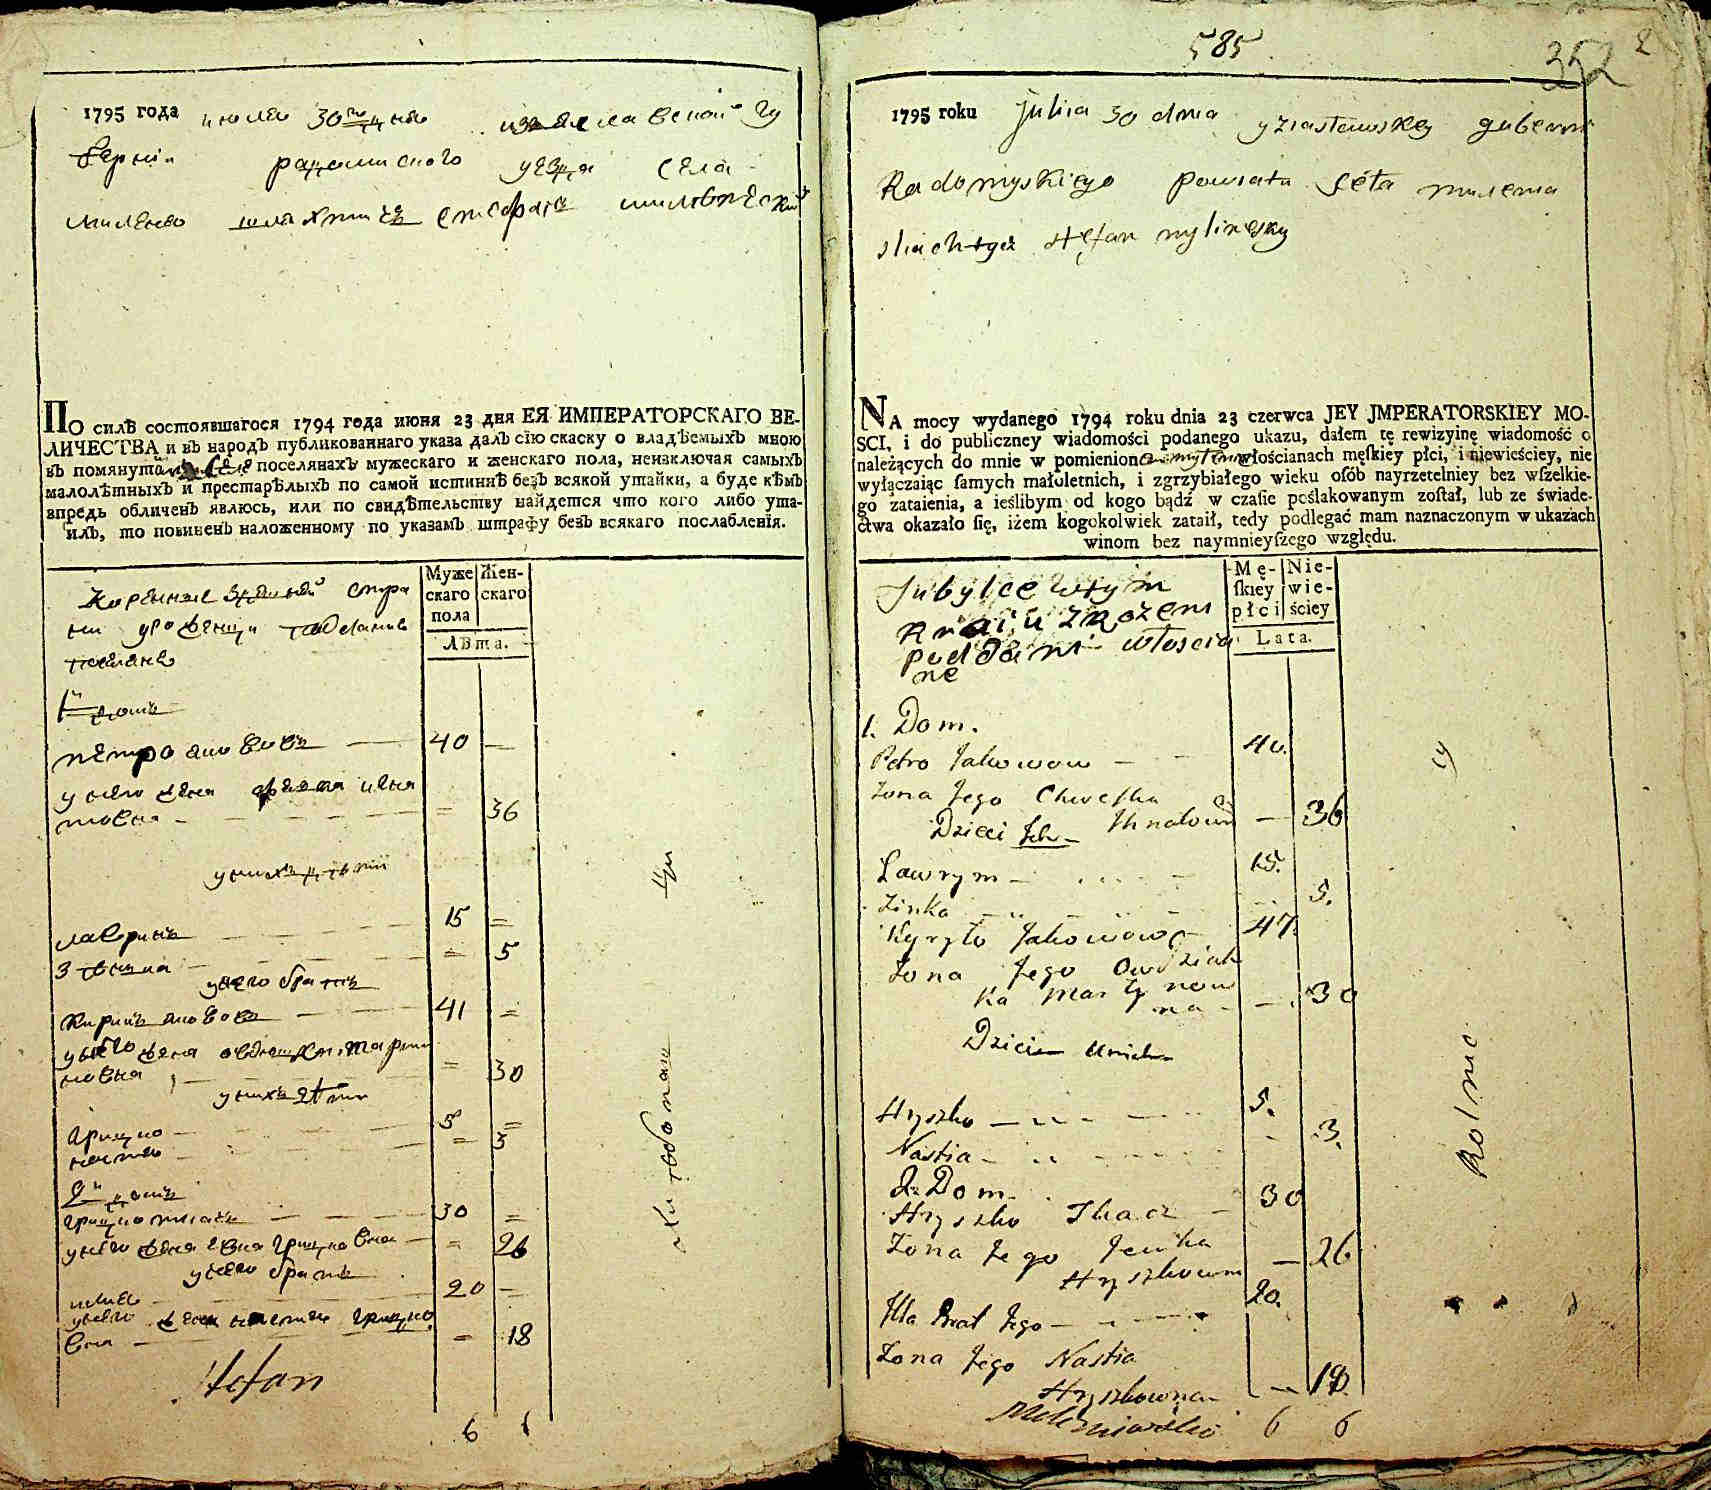 1795 года июля 30го дня изяславской гу
берніи радомислского уезда села
миленко шляхтичъ стефанъ
ПО силѣ состоявшагося 1794 года июня 23 дня ЕЯ ИМПЕРАТОРСКАГО ВЕ-
ЛИЧЕСТВА и въ народъ публикованнаго указа далъ сїю скаску о владѣемыхъ мною
въ помянутомъ селе поселянахъ мужескаго и женскаго пола, неизключая самыхъ
малолѣтныхъ и престарѣлыхъ по самой истиннѣ безъ всякой утайки, а буде кѣмъ
впредь обличенъ явлюсь, или по свидѣтельству найдется что кого либо ута-
илъ, то повиненъ наложенному по указамъ штрафу безъ всякаго послабленїя.
Муже
скаго
пола
Жен-
скаго
Лѣта.
уроженци подданые
поселяне
1й домъ
петро якововъ 40 —
у него жена
36
у нихъ дѣти
лавринъ 15 =
зѣнка = 5
у него братъ
якововъ 41 =
у него жена
новна = 30
у нихъ дѣти
грицко 5 =
настя = 3
2й домъ
грицко ткачъ 30 =
у него жена евка грицковна = 26
у него братъ
илко 20 —
у него жена настия грицко
вна = 18
Stefan
6 6
585
352 2
1795 roku Julia 30 dnia yziasławskey guberni
Radomyskiego powiatu seła milenia
sliachtycz stefan mylinesky
NA mocy wydanego 1794 roku dnia 23 czerwca JEY JMPERATORSKIEY MO-
SCI, i do publiczney wiadomości podanego ukazu, dałem tę rewizyinę wiadomość o
należących do mnie w pomieniono włościanach męſkiey płci, i niewieściey, nie
wyłączaiąc ſamych małoletnich, i zgrzybiałego wieku oſób nayrzetelniey bez wſzelkie-
go zataienia, a ieślibym od kogo bądź w czaſie poślakowanym zoſtał, lub ze świade-
ctwa okazało ſię, iżem kogokolwiek zataił, tedy podlegać mam naznaczonym w ukazach
winom bez naymnieyſzego względu.
Mę-
ſkiey
płci
Nie-
wie-
ściey
Lata.
w tym
kraiu zrozeni
poddani włoscia
ne
1. Dom.
Petro Jakowow — 40.
Zona Jego Chweska
Ihnatowa — 36
Dzieci Ich
Lawrym — 15.
Zinka — 5.
Kyryło Jakowow — 47.
Zona Jego Owdziah
ka Martynow
na — 30
Dzieci u nich
Hryszko — 5.
Nastia — 3.
2. Dom.
Hryszko Tkacz — 30
Zona Jego Jewka
Hryszkowna — 26
Ilko Brat Jego — 20.
Zona Jego Nastia
Hryszkowna — 18.
6 6
Rolnic